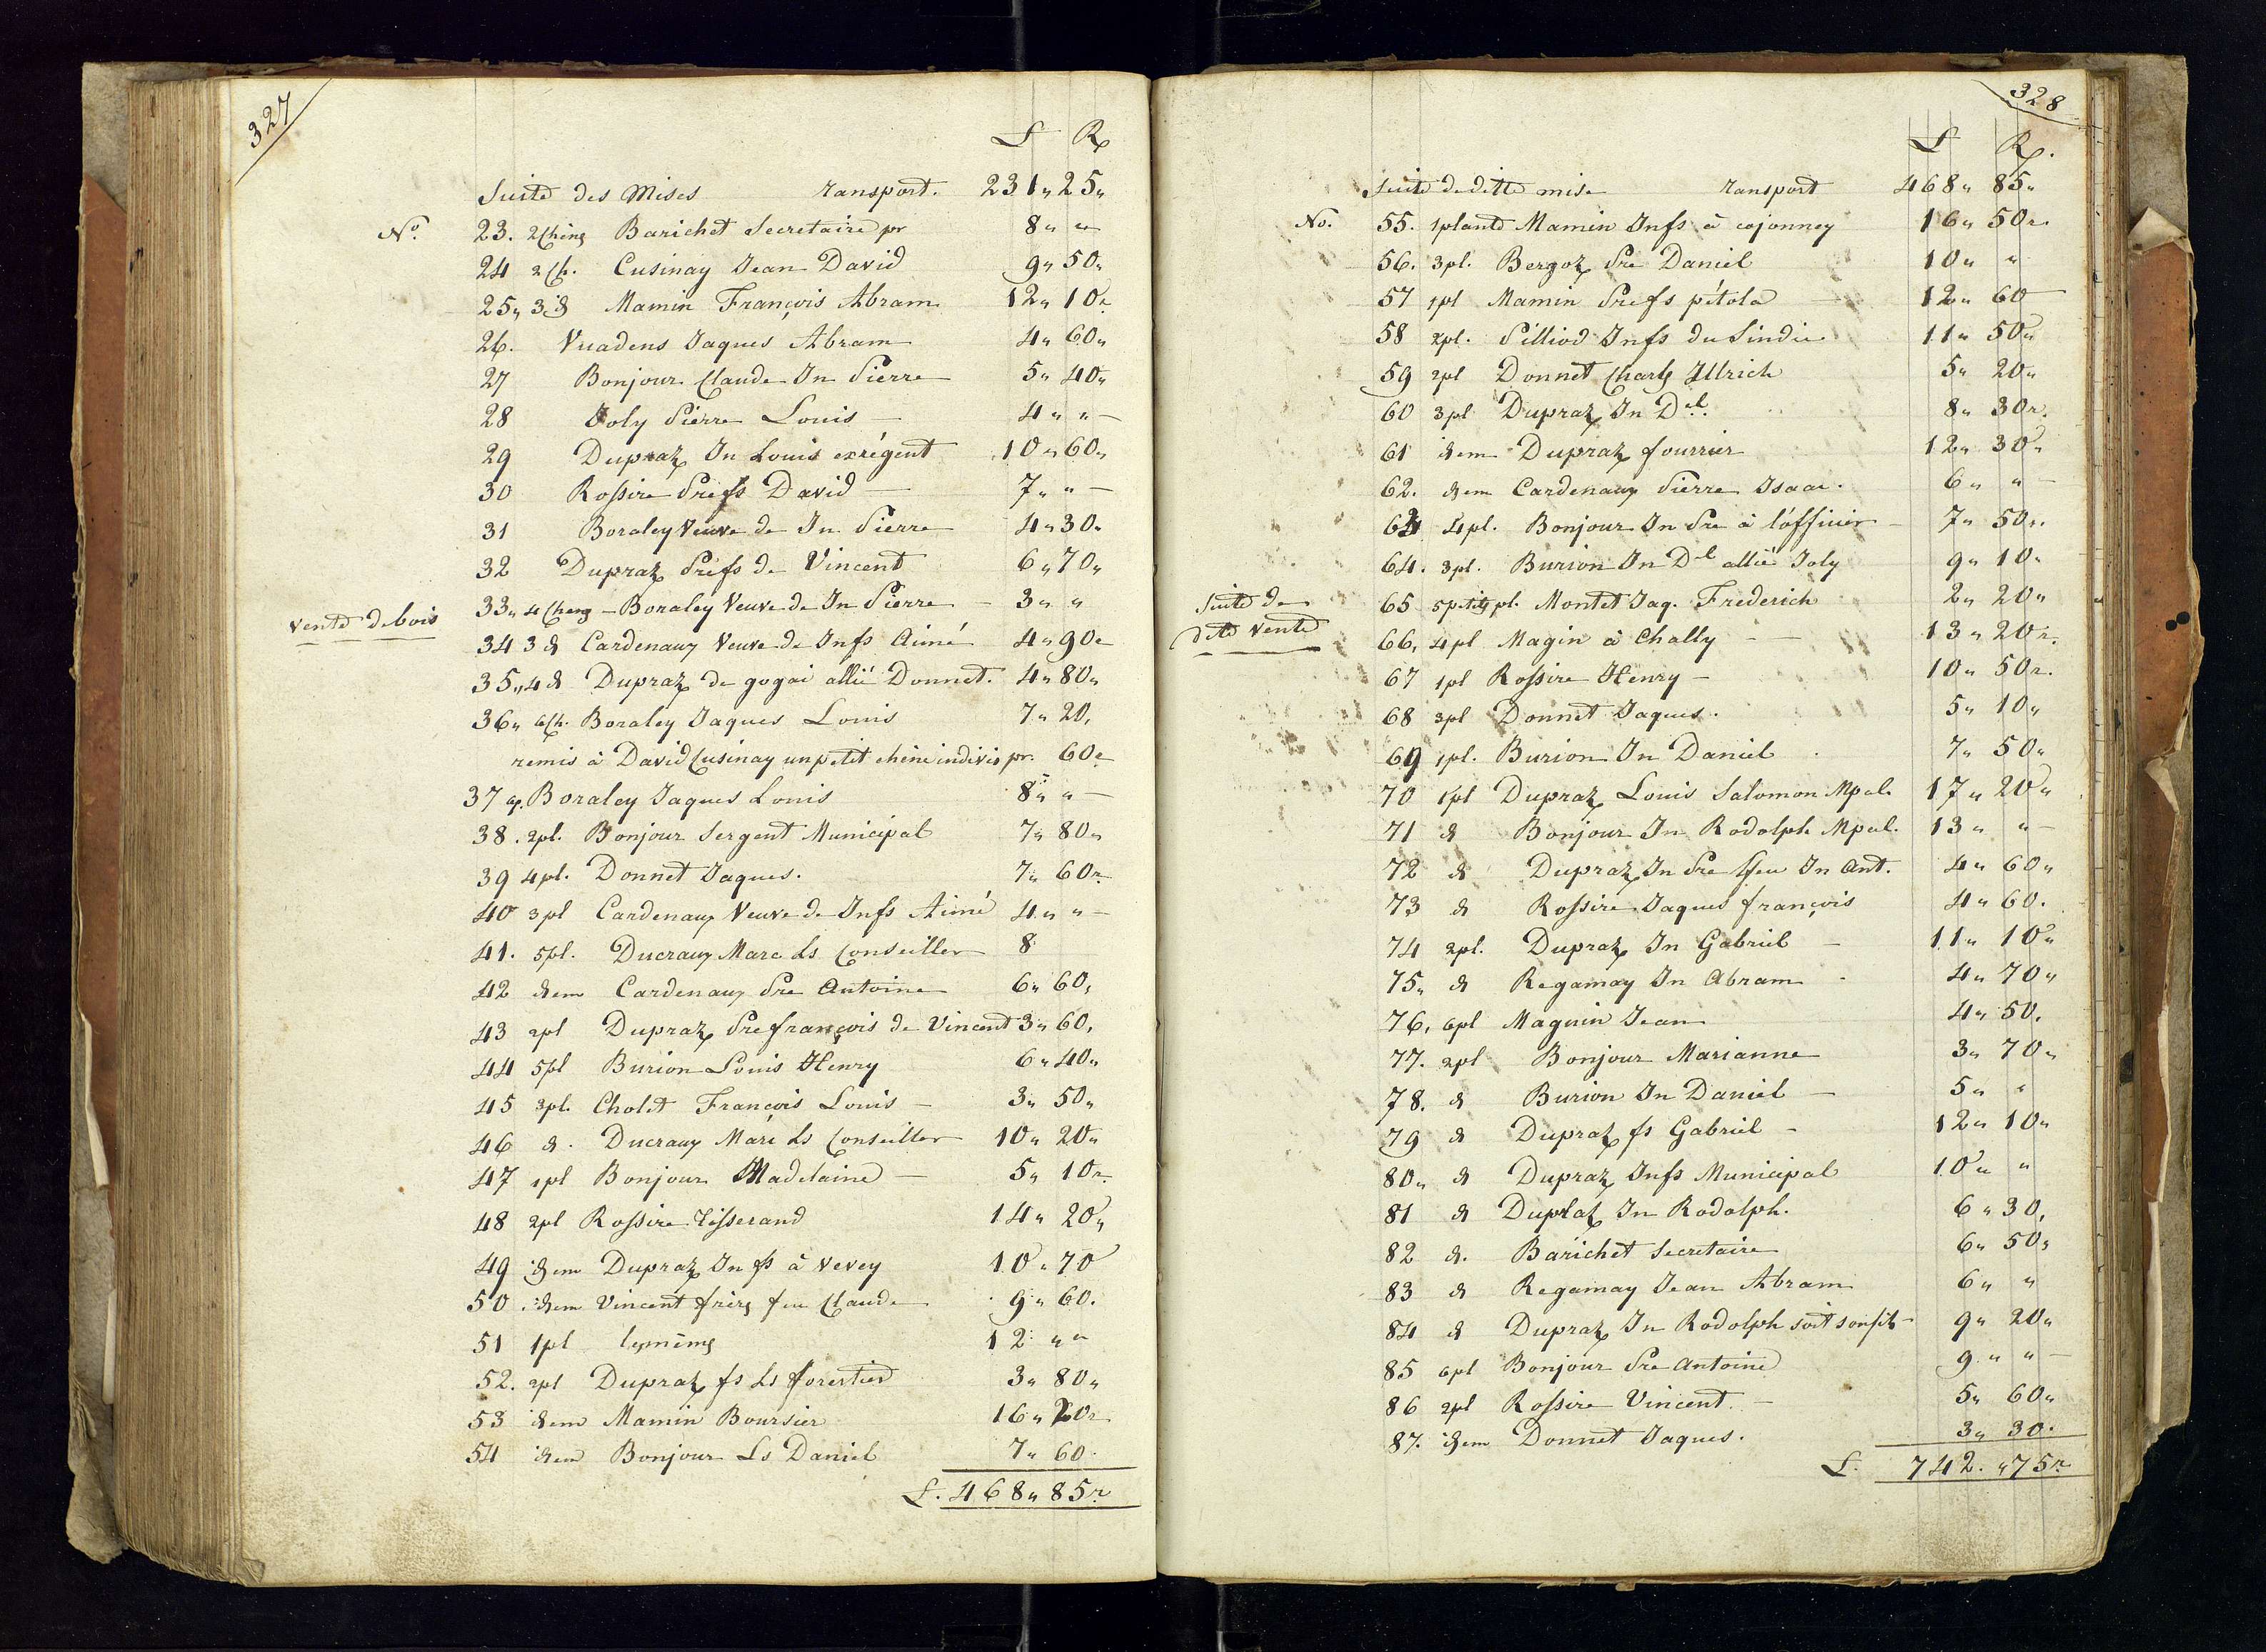 327
L R
Suite des Mises transport. 231 " 25 "
No. 23. 2 Chêng Barichet Secretaire pr 8 " "
24 2 Ch. Cusinay Jean David 9 " 50 "
25 " 3 d Mamin François Abram 12 " 10 r
26. Vuadens Jaques Abram 4 " 60 "
27 Bonjour Claude Jn Pierre 5 " 40 "
28 Joly Pierre Louis 4 " "
29 Dupraz Jn Louis exrégent 10 " 60 "
30 Rossire Prefs David 7 " "
31 Boraley Veuve de Jn Pierre 4 " 30 "
32 Dupraz Prefs de Vincent 6 " 70 "
vente de bois
33 " 4 Cheng Boraley Veuve de Jn Pierre 3 " "
34 3 d Cardenaux Veuve de Jnfs Aimé 4 " 90 r
35 " 4 d Dupraz de gogai allié Donnet. 4 " 80 "
36 " 6 Ch. Boraley Jaques Louis 7 " 20 "
remis à David Cusinay un petit chêne indivis pr. 60 r
37 Boraley Jaques Louis 8 " "
38. 2pl. Bonjour Sergent Municipal 7 " 80 "
39 4pl. Donnet Jaques. 7 " 60 r
40 3pl Cardenaux Veuve de Jnfs Aimé 4 " "
41. 5pl. Ducraux Marc Ls Conseiller 8
42 idem Cardenaux Pre Antoine 6 " 60 "
43 2pl Dupraz Pre françois de Vincent 3 " 60 "
44 5pl Burion Louis Henry 6 " 40 "
45 3pl. Cholet François Louis 3 " 50 "
46 d. Ducraux Marc Ls Conseiller 10 " 20 "
47 1pl Bonjour Madelaine 5 " 10 r
48 2pl Rossire Tisserand 14 " 20 "
49 idem Dupraz Jn fs à Vevey 10 " 70
50. idem Vincent frères feu Claude 9 " 60.
51 1pl les mêmes 12 " "
52. 2pl Dupraz fs Ls forestier 3 " 80 "
53 idem Mamin Boursier 16 " 20 r
54 idem Bonjour Ls Daniel 7 " 60
L. 468 " 85 r
328
L R.
Suite de ditte mise transport 468 " 85 "
No. 55. 1 plante Mamin Jnfs à cojonney 16 " 50 r
56. 3pl. Bergoz Pre Daniel 10 " "
57 1pl Mamin Prefs pétola 12 " 60
58 2pl. Pilliod Jnfs du Sindic 11 " 50 "
59 2pl Donnet Charles Ullrich 5 " 20 "
60 3pl Dupraz Jn Dl. 8 " 30 r
61 idem Dupraz fourrier 12 " 30 "
62. idem Cardenaux Pierre Isaac. 6 " "
63 4pl. Bonjour Jn Pre à l'officier 7 " 50 "
64. 3pl. Burion Jn Dl allié Joly 9 " 10 "
Suite de
dite vente
65 5 petites pl. Montet Jaq. Frederich 2 " 20 "
66. 4pl Magin à Chally 13 " 20 r.
67 1pl Rossire Henry 10 " 50 r.
68 3pl Donnet Jaques. 5 " 10 "
69 1pl. Burion Jn Daniel 7 " 50 "
70 1pl Dupraz Louis Salomon Mpal. 17 " 20 "
71 d Bonjour Jn Rodolph Mpal. 13 " "
72 d Dupraz Jn Pre ffeu Jn Ant. 4 " 60 "
73 d Rossire Jaques françois 4 " 60.
74 2pl. Dupraz Jn Gabriel 11 " 10 "
75 " d Regamay Jn Abram 4 " 70 "
76. 6pl Maguin Jean 4 " 50.
77. 2pl Bonjour Marianne 3 " 70 "
78. d Burion Jn Daniel 5 " "
79 d Dupraz fs Gabriel 12 " 10 "
80 " d Dupraz Jnfs Municipal 10 " "
81 d Dupraz Jn Rodolph. 6 " 30 "
82 d. Barichet Secretaire 6 " 50 "
83 d Regamay Jean Abram 6 " "
84 d Dupraz Jn Rodolph soit son fils 9 " 20 "
85 6pl Bonjour Pre Antoine 9 " "
86 2pl Rossire Vincent. 5 " 60 "
87. idem Donnet Jaques. 3 " 30.
L. 742. " 75 r